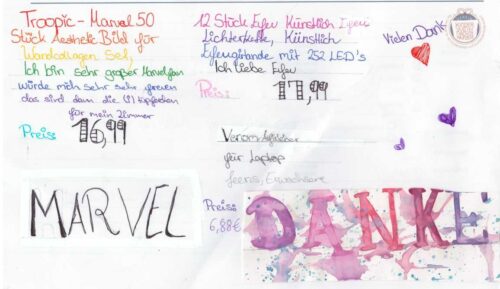 Troopic - Marvel 50
Stück Aesthetic Bild für
Wandcollagen Set,
Ich bin sehr großer Marvelfan
würde mich sehr sehr freuen
das sind dann die (!)
für mein Zimmer
Preis:
16,99
12 Stück Efeu Künstlich
Lichterkette, Künstlich
Efeugirlande mit 252 LED's
Ich liebe Efeu
Preis:
17,99
Vielen Dank
Venom Aufkleber
für Laptop
Teens, Erwachsene
Preis:
6,88€
MARVEL
DANKE